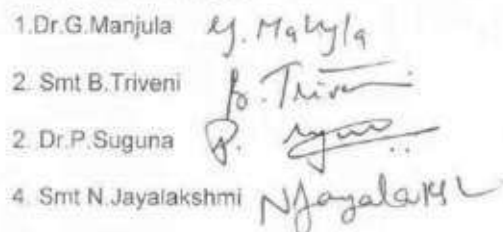 1.Dr.G.Manjula G. Manjula
2. Smt B.Triveni B. Triveni
2. Dr.P.Suguna P.
4. Smt N.Jayalakshmi N Jayalakshmi